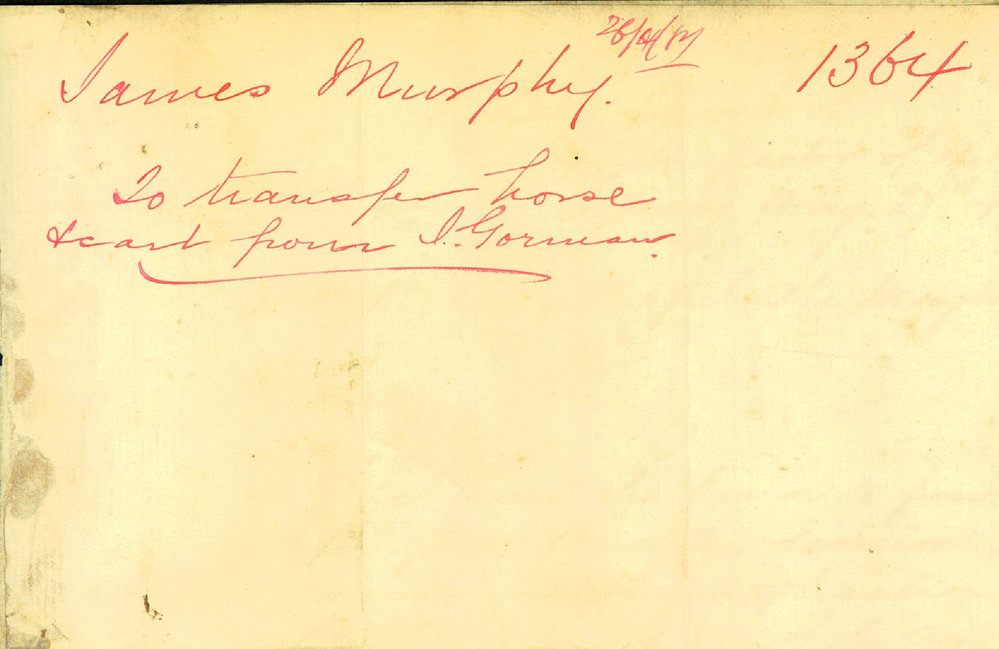 James Murphy. 1364
To transfer horse
& cart from J. Gorman.